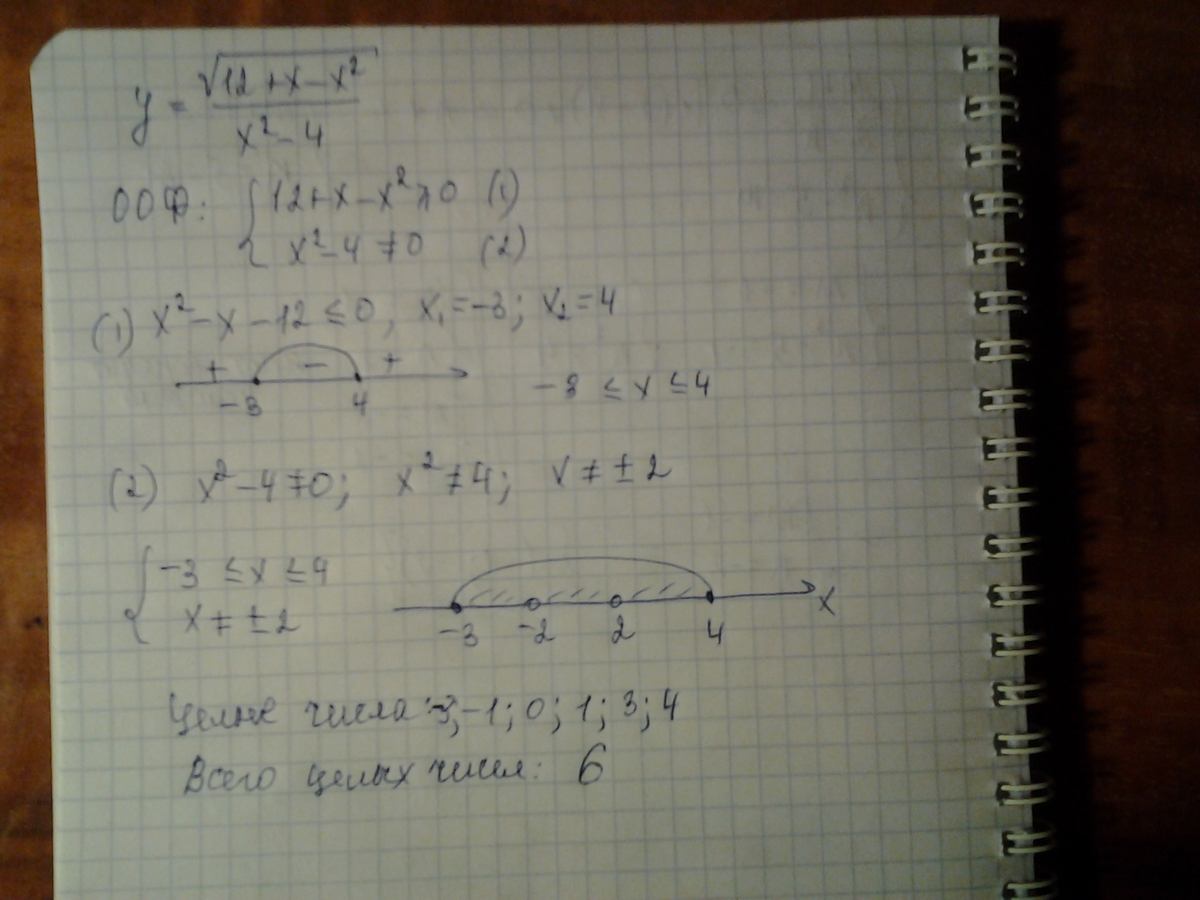 y = √(12+x-x²) / (x²-4)
ООФ: { 12+x-x² ≥ 0 (1)
x²-4 ≠ 0 (2)
(1) x²-x-12 ≤ 0, x₁=-3; x₂=4
+ - +
-3 4 -3 ≤ x ≤ 4
(2) x²-4≠0; x²≠4; x≠±2
{ -3 ≤ x ≤ 4
x ≠ ±2
-3 -2 2 4 x
Целые числа: -3, -1; 0; 1; 3; 4
Всего целых чисел: 6